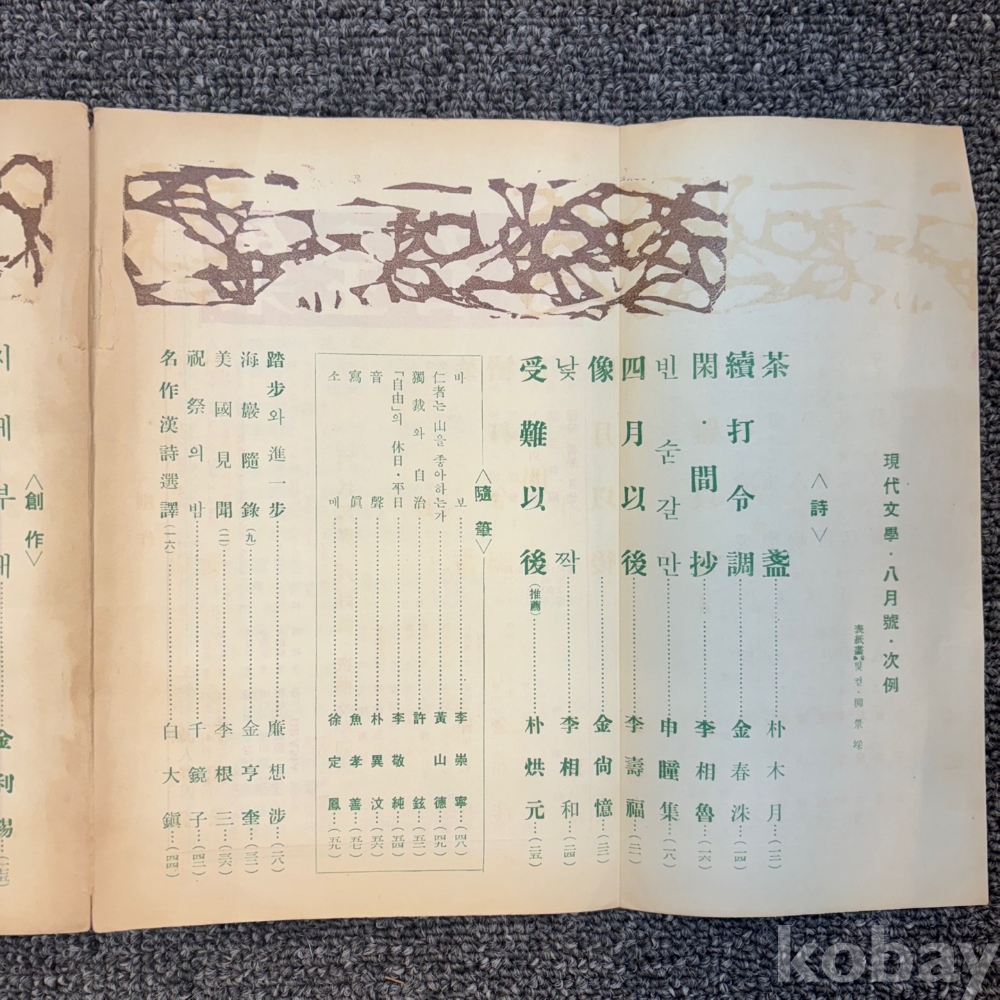 現代文學・八月號・次例
表紙畫・및컽・
〈詩〉
茶盞 朴木月…(一二)
續打令調 金春洙…(一四)
閑・間抄 李相魯…(一六)
빈 숟갈만 申瞳集…(一八)
四月以後 李壽福…(二一)
像 金尙憶…(二三)
낮짝 李相和…(二四)
受難以後(推薦) 朴烘元…(二五)
〈隨筆〉
바보 李崇寧…(四八)
仁者는 山을 좋아하는가 黃山德…(四九)
獨裁와 自治 許鉉…(五二)
「自由」의 休日・平日 李敬純…(五四)
音聲 朴異汶…(五六)
寫眞 魚孝善…(五七)
소매 徐定鳳…(五九)
踏步와 進一步 廉想涉…(二八)
海巖隨錄(九) 金亨奎…(三二)
美國見聞(二) 李根三…(三六)
祝祭의 밤 千鏡子…(四二)
名作漢詩選譯(一六) 白大鎭…(四四)
〈創作〉
지
부
대
金利錫
kobay